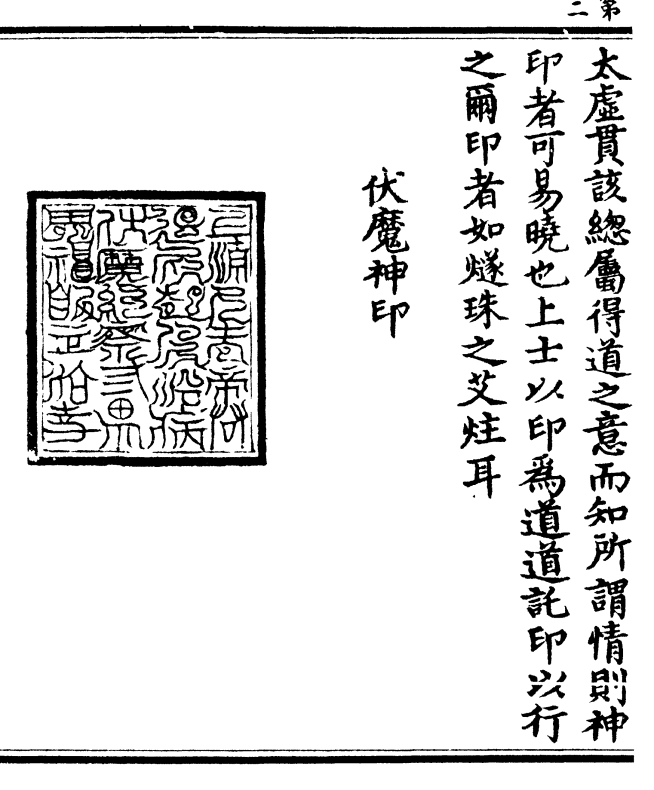 第二
太虛貫該總屬得道之意而知所謂情則神
印者可易曉也上士以印爲道道託印以行
之爾印者如燧珠之艾炷耳
伏魔神印